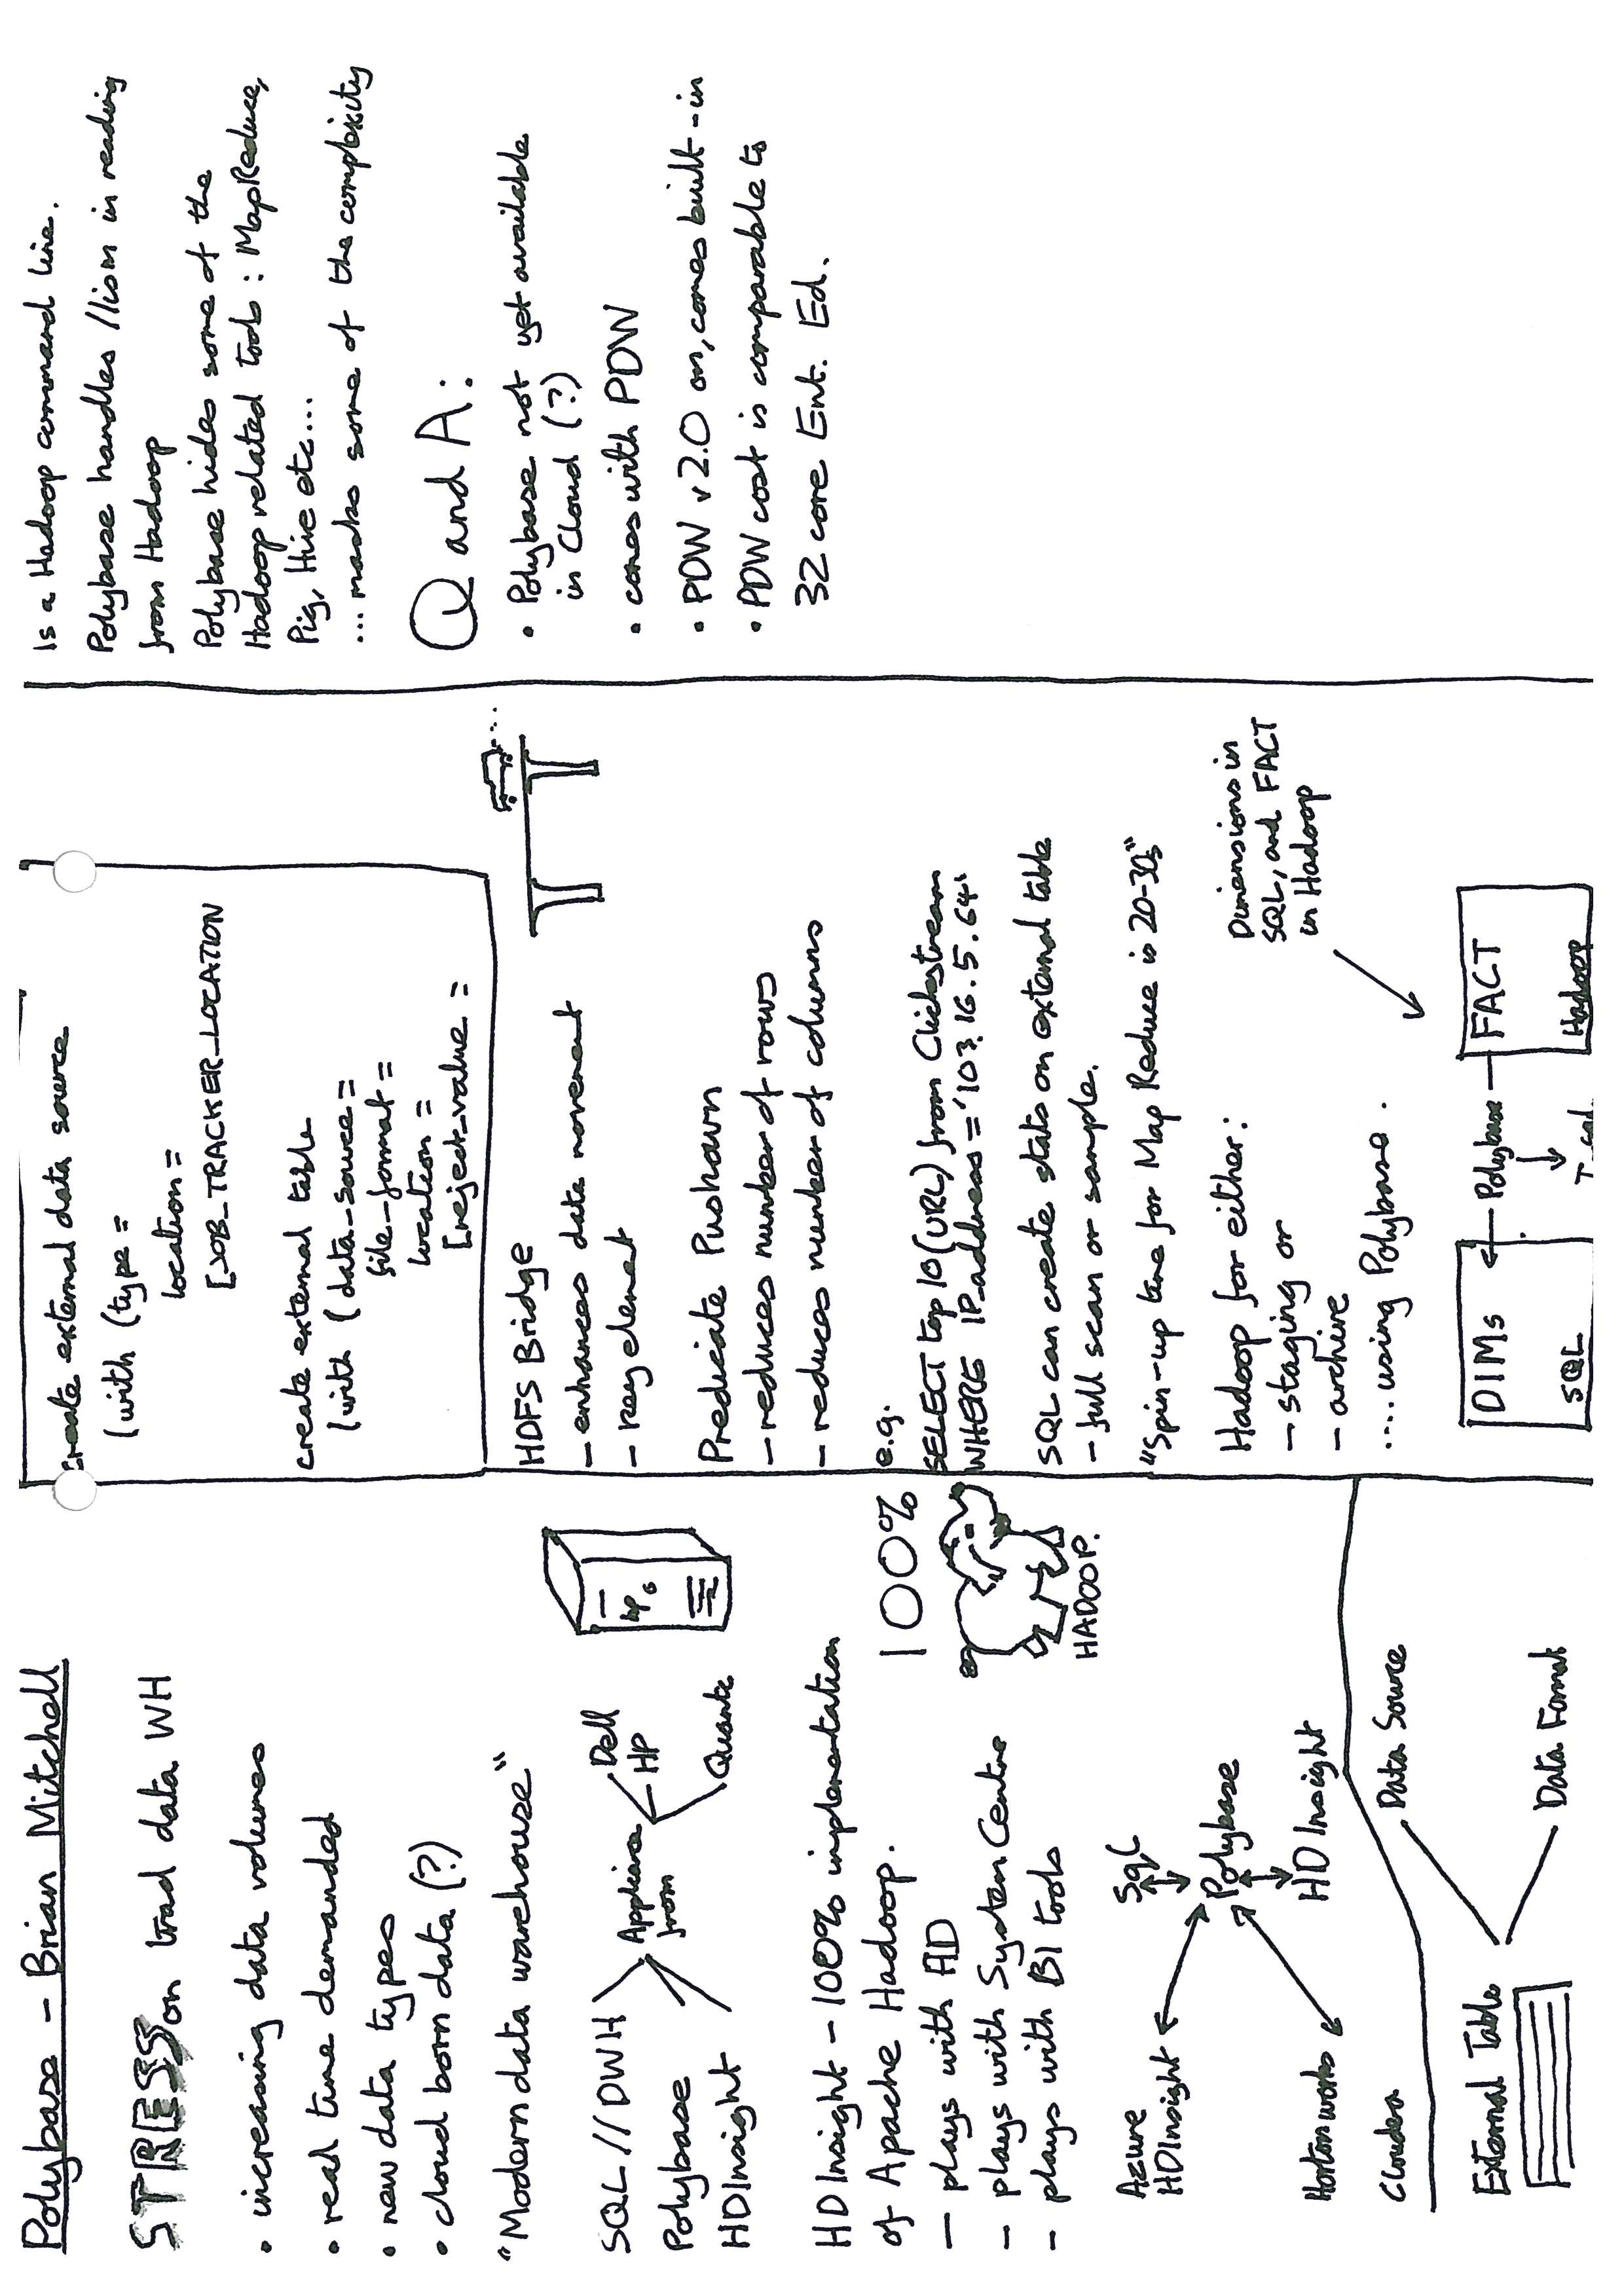 Polybase - Brian Mitchell
STRESS on trad data WH
• increasing data volumes
• real time demanded
• new data types
• cloud born data (?)
"Modern data warehouse"
SQL // DWH
Polybase
HDInsight
Appliance
from
Dell
HP
Quanta
hp
HD Insight - 100% implementation
of Apache Hadoop.
- plays with AD
- plays with System Centre
- plays with BI tools
100%
HADOOP.
Azure
HDInsight
Sql
Polybase
Hortonworks
HD Insight
Cloudera
External Table
Data Source
Data Format
create external data source
(with (type =
location =
[JOB_TRACKER_LOCATION
create external table
(with (data_source =
file_format =
location =
[reject_value =
HDFS Bridge
- enhances data movement
- key element
Predicate Pushdown
- reduces number of rows
- reduces number of columns
e.g.
SELECT top 10 (URL) from Clickstream
WHERE IP_address = '103.16.5.64'
SQL can create stats on external table
- full scan or sample.
"Spin-up time for Map Reduce is 20-30s"
Hadoop for either:
- staging or
- archive
.... using Polybase.
Dimensions in
SQL, and FACT
in Hadoop
DIMs
SQL
Polybase
T-sql
FACT
Hadoop
Is a Hadoop command line.
Polybase handles //ism in reading
from Hadoop
Polybase hides some of the
Hadoop related tools : MapReduce,
Pig, Hive etc...
... masks some of the complexity
Q and A:
• Polybase not yet available
in Cloud (?)
• comes with PDW
• PDW v2.0 on, comes built-in
• PDW cost is comparable to
32 core Ent. Ed.